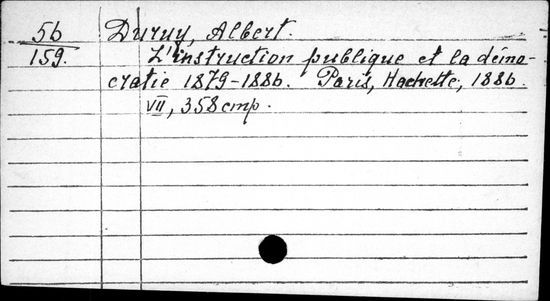 56 Duruy, Albert.
159. L'instruction publique et la démo-
cratie 1879-1886. Paris, Hachette, 1886.
VII, 358 стр.